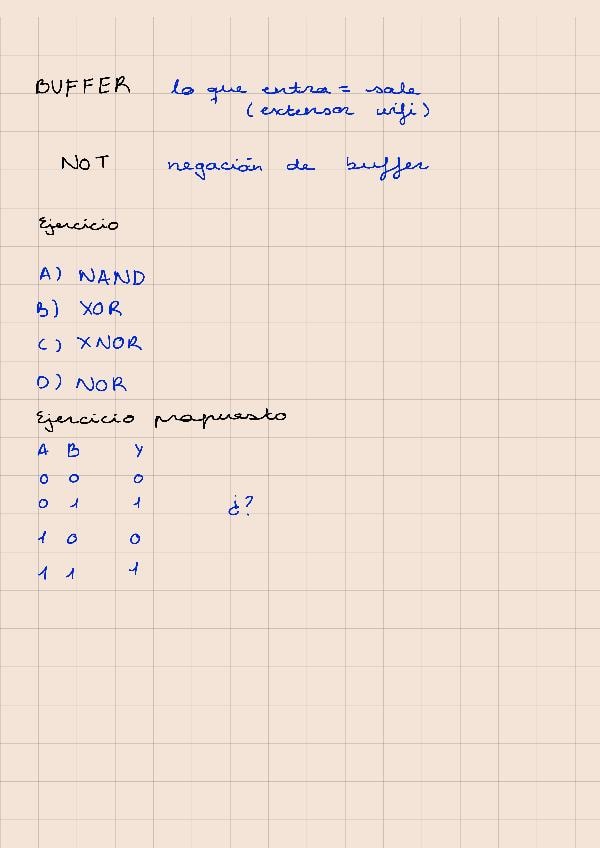 BUFFER lo que entra = sale
(extensor wifi)
NOT negación de buffer
Ejercicio
A) NAND
B) XOR
C) XNOR
D) NOR
Ejercicio propuesto
A B Y
0 0 0
0 1 1 ¿?
1 0 0
1 1 1